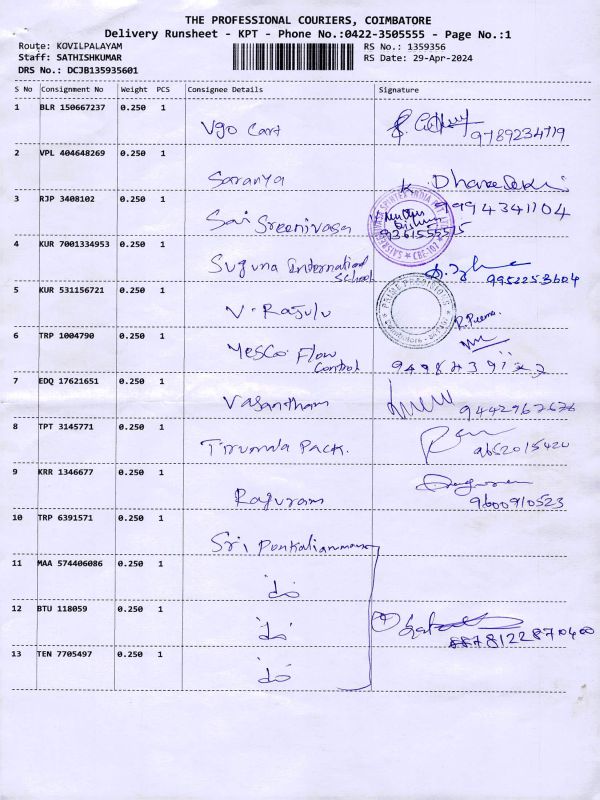 THE PROFESSIONAL COURIERS, COIMBATORE
Delivery Runsheet - KPT - Phone No.:0422-3505555 - Page No.:1
Route: KOVILPALAYAM RS No.: 1359356
Staff: SATHISHKUMAR RS Date: 29-Apr-2024
DRS No.: DCJB135935601
S No Consignment No Weight PCS Consignee Details Signature
1 BLR 150667237 0.250 1 Vgo Cart 9789234719
2 VPL 404648269 0.250 1 Saranya
3 RJP 3408102 0.250 1 Sai Sreenivasa 9994341104
9361555515
CBE-107
4 KUR 7001334953 0.250 1 Suguna International School 9952253604
5 KUR 531156721 0.250 1 V. Rajulu
6 TRP 1004790 0.250 1 Yesco Flow Control
7 EDQ 17621651 0.250 1 Vasantham 9442967676
8 TPT 3145771 0.250 1 Tirumala Pack. 9652015420
9 KRR 1346677 0.250 1 Raguram 9600910523
10 TRP 6391571 0.250 1 Sri Ponkaliamman
11 MAA 574406086 0.250 1 do
12 BTU 118059 0.250 1 do 8122870400
13 TEN 7705497 0.250 1 do